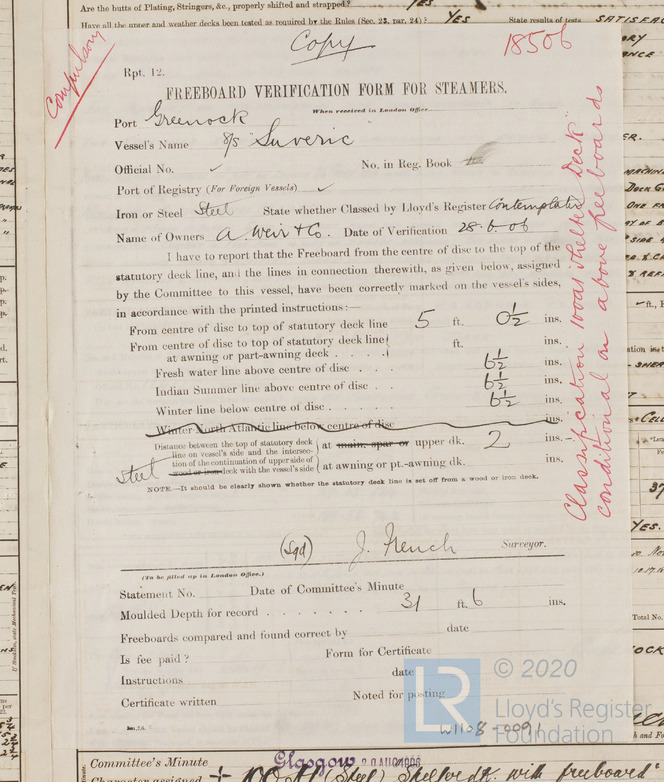 Are the butts of Plating, Stringers, &c., properly shifted and strapped? YES
Have all the upper and weather decks been tested as required by the Rules (Sec. 23, par. 24)? YES State results of tests SATISFAC
Copy
18506
Compulsory
Rpt. 12.
FREEBOARD VERIFICATION FORM FOR STEAMERS.
When received in London Office
Port Greenock
Vessel's Name S/S "Suveric"
Official No. ✓ No. in Reg. Book
Port of Registry (For Foreign Vessels) ✓
Iron or Steel Steel State whether Classed by Lloyd's Register Contemplated
Name of Owners A. Weir & Co. Date of Verification 28.6.06
I have to report that the Freeboard from the centre of disc to the top of the
statutory deck line, and the lines in connection therewith, as given below, assigned
by the Committee to this vessel, have been correctly marked on the vessel's sides,
in accordance with the printed instructions:—
From centre of disc to top of statutory deck line 5 ft. 0½ ins.
From centre of disc to top of statutory deck line
at awning or part-awning deck . . . . ft. ins.
Fresh water line above centre of disc . . . 6½ ins.
Indian Summer line above centre of disc . . 6½ ins.
Winter line below centre of disc . . . . 6½ ins.
Winter North Atlantic line below centre of disc ins.
Distance between the top of statutory deck
line on vessel's side and the intersec-
tion of the continuation of upper side of
Steel wood or iron deck with the vessel's side
at main, spar or upper dk. 2 ins.
at awning or pt.-awning dk. ins.
NOTE.—It should be clearly shown whether the statutory deck line is set off from a wood or iron deck.
Classification 100A1 "Shelter Deck"
conditional on above freeboards
(Sgd) J. French Surveyor.
(To be filled up in London Office.)
Statement No. Date of Committee's Minute
Moulded Depth for record . . . . . . . 31 ft. 6 ins.
Freeboards compared and found correct by date
Is fee paid? Form for Certificate
Instructions date
Certificate written Noted for posting
W1108-0091
LR
© 2020
Lloyd's Register
Foundation
Committee's Minute Glasgow
Character assigned + 100A1 (Steel) Shelter dk. with freeboard